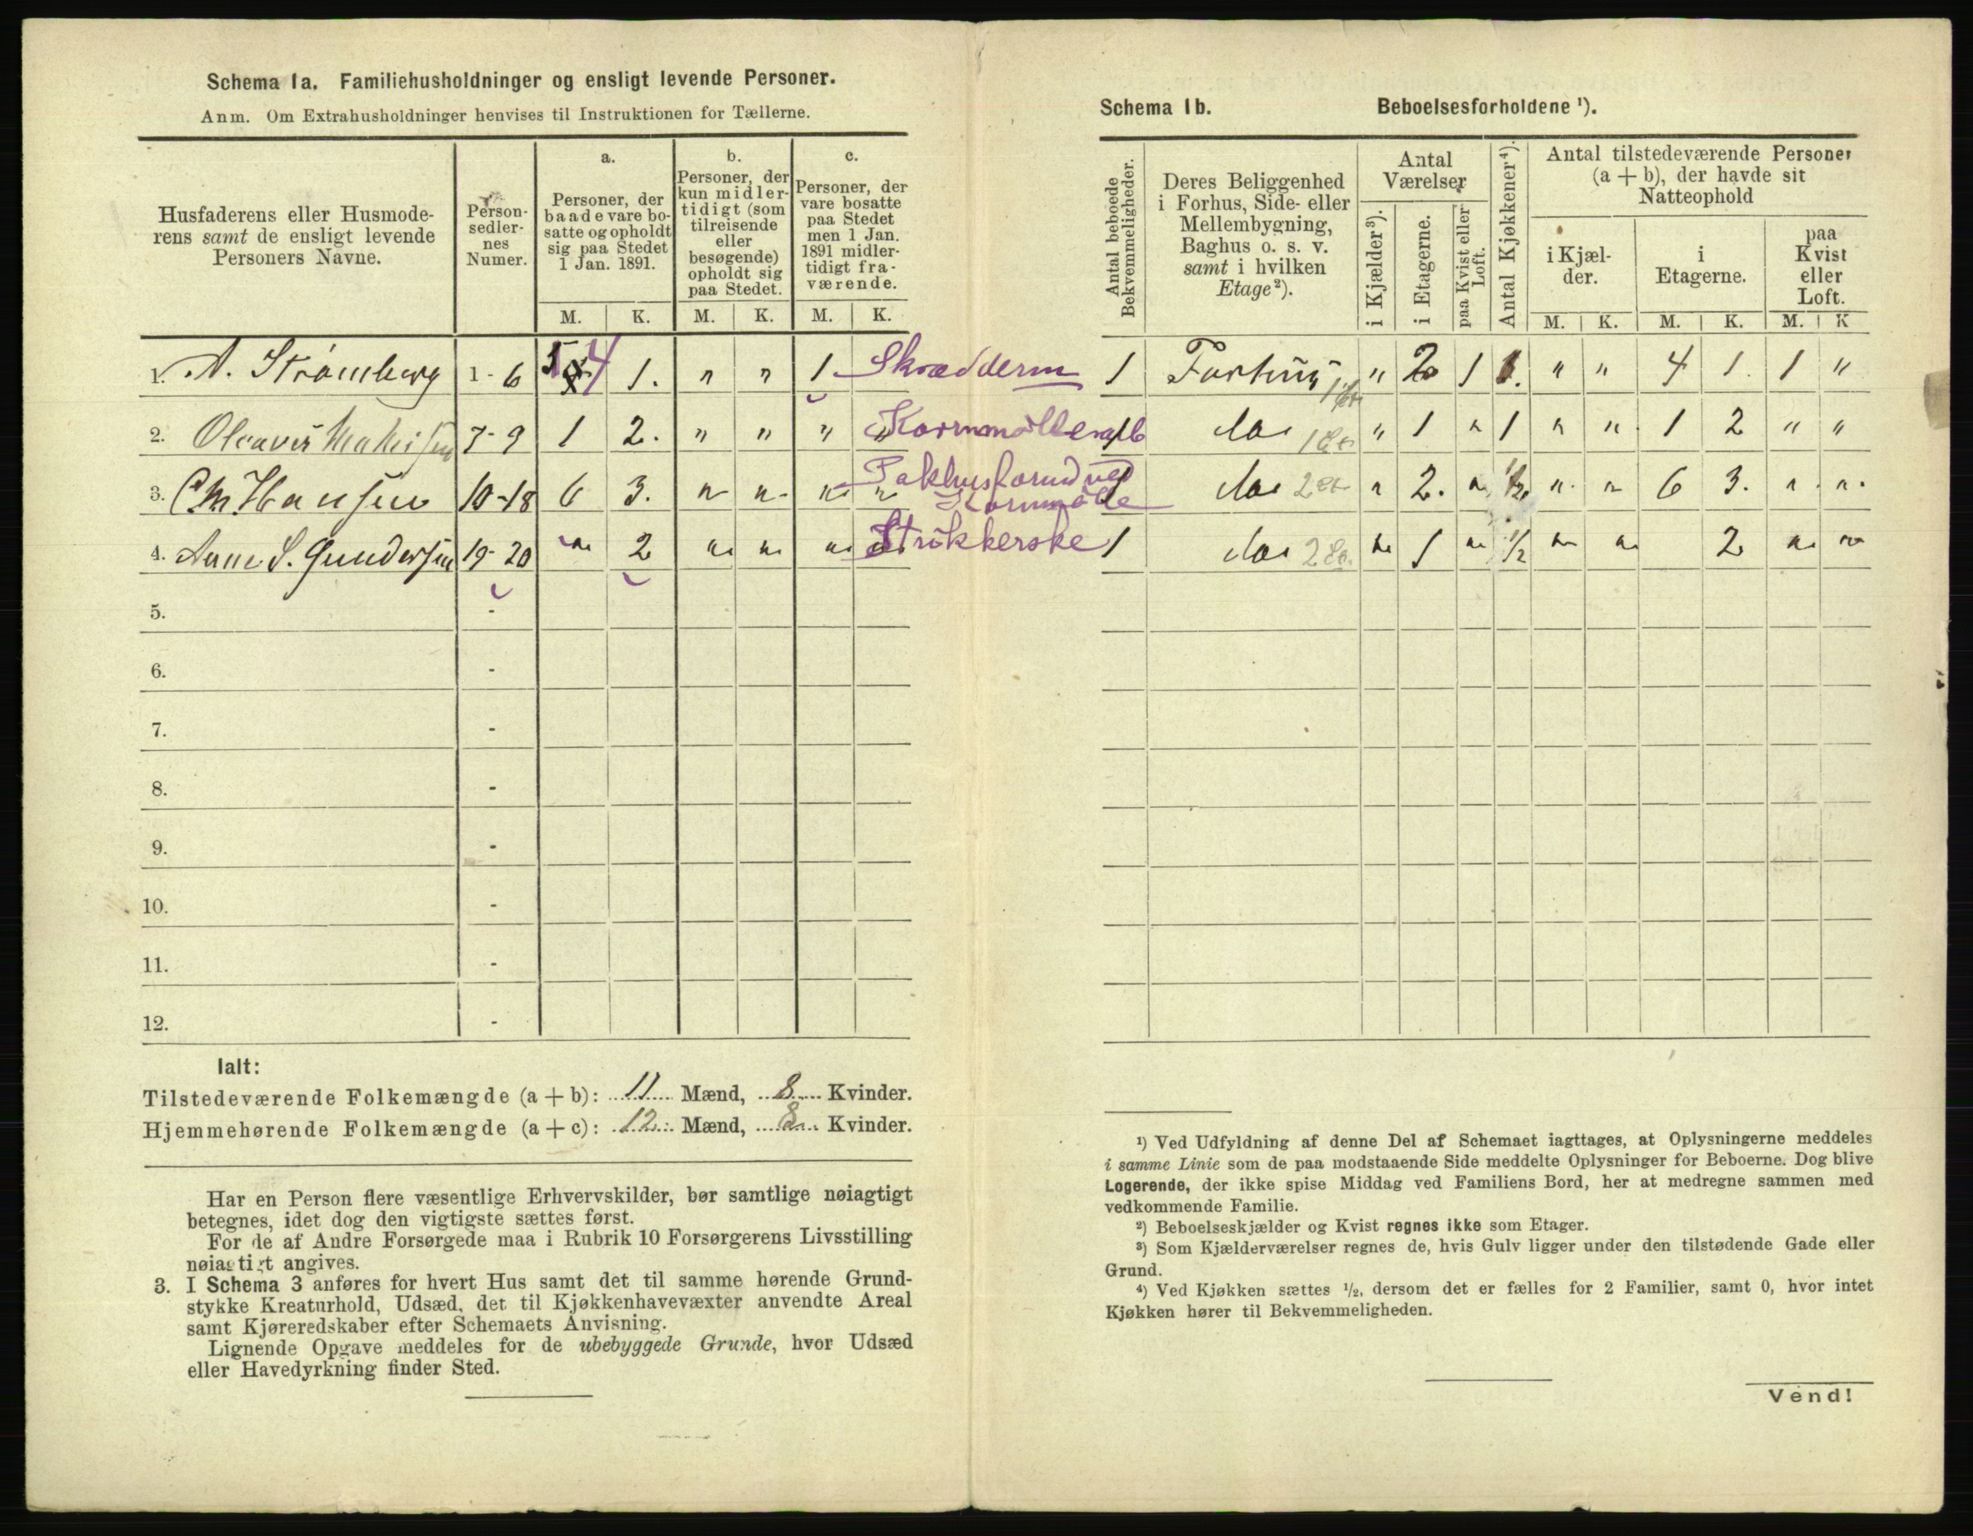 Schema 1a. Familiehusholdninger og ensligt levende Personer.
Anm. Om Extrahusholdninger henvises til Instruktionen for Tællerne.
Husfaderens eller Husmoderens samt de ensligt levende Personers Navne.
Personsedlernes Numer.
a.
Personer, der baade vare bosatte og opholdt sig paa Stedet 1 Jan. 1891.
b.
Personer, der kun midlertidigt (som tilreisende eller besøgende) opholdt sig paa Stedet.
c.
Personer, der vare bosatte paa Stedet men 1 Jan. 1891 midlertidigt fraværende.
M. K. M. K. M. K.
1. A. Strømberg 1 - 6 5 4 1. " " 1 Skrædderm
2. Olavus 7 - 9 1 2. " " " " Kornmøllearb
3. C M Hansen 10 - 18 6 3. " " " " Pakhusformd ved Kornmølle
4. Anne S. Gundersen 19 - 20 " 2 " " " " Strøkkerske
5. -
6. -
7. -
8. -
9. -
10. -
11. -
12. -
Ialt:
Tilstedeværende Folkemængde (a + b): 11 Mænd, 8 Kvinder.
Hjemmehørende Folkemængde (a + c): 12 Mænd, 8 Kvinder.
Har en Person flere væsentlige Erhvervskilder, bør samtlige nøiagtigt
betegnes, idet dog den vigtigste sættes først.
For de af Andre Forsørgede maa i Rubrik 10 Forsørgerens Livsstilling
nøiagtigt angives.
3. I Schema 3 anføres for hvert Hus samt det til samme hørende Grund-
stykke Kreaturhold, Udsæd, det til Kjøkkenhavevæxter anvendte Areal
samt Kjøreredskaber efter Schemaets Anvisning.
Lignende Opgave meddeles for de ubebyggede Grunde, hvor Udsæd
eller Havedyrkning finder Sted.
Schema 1b. Beboelsesforholdene ¹).
Antal beboede Bekvemmeligheder.
Deres Beliggenhed i Forhus, Side- eller Mellembygning, Baghus o. s. v. samt i hvilken Etage²).
Antal Værelser
i Kjælder³).
i Etagerne.
paa Kvist eller Loft.
Antal Kjøkkener⁴).
Antal tilstedeværende Personer (a + b), der havde sit Natteophold
i Kjælder.
i Etagerne.
paa Kvist eller Loft.
M. K. M. K. M. K
1 Forhus 1 Et " 2 1 1. " " 4 1. 1 "
1 do 1 Et " 1 " 1 " " 1 2 " "
1 do 2 Et " 2. " ½ " " 6 3. " "
1 do 2 Et. " 1 " ½ " " 2 " "
¹) Ved Udfyldning af denne Del af Schemaet iagttages, at Oplysningerne meddeles
i samme Linie som de paa modstaaende Side meddelte Oplysninger for Beboerne. Dog blive
Logerende, der ikke spise Middag ved Familiens Bord, her at medregne sammen med
vedkommende Familie.
²) Beboelseskjælder og Kvist regnes ikke som Etager.
³) Som Kjælderværelser regnes de, hvis Gulv ligger under den tilstødende Gade eller
Grund.
⁴) Ved Kjøkken sættes ½, dersom det er fælles for 2 Familier, samt 0, hvor intet
Kjøkken hører til Bekvemmeligheden.
Vend!